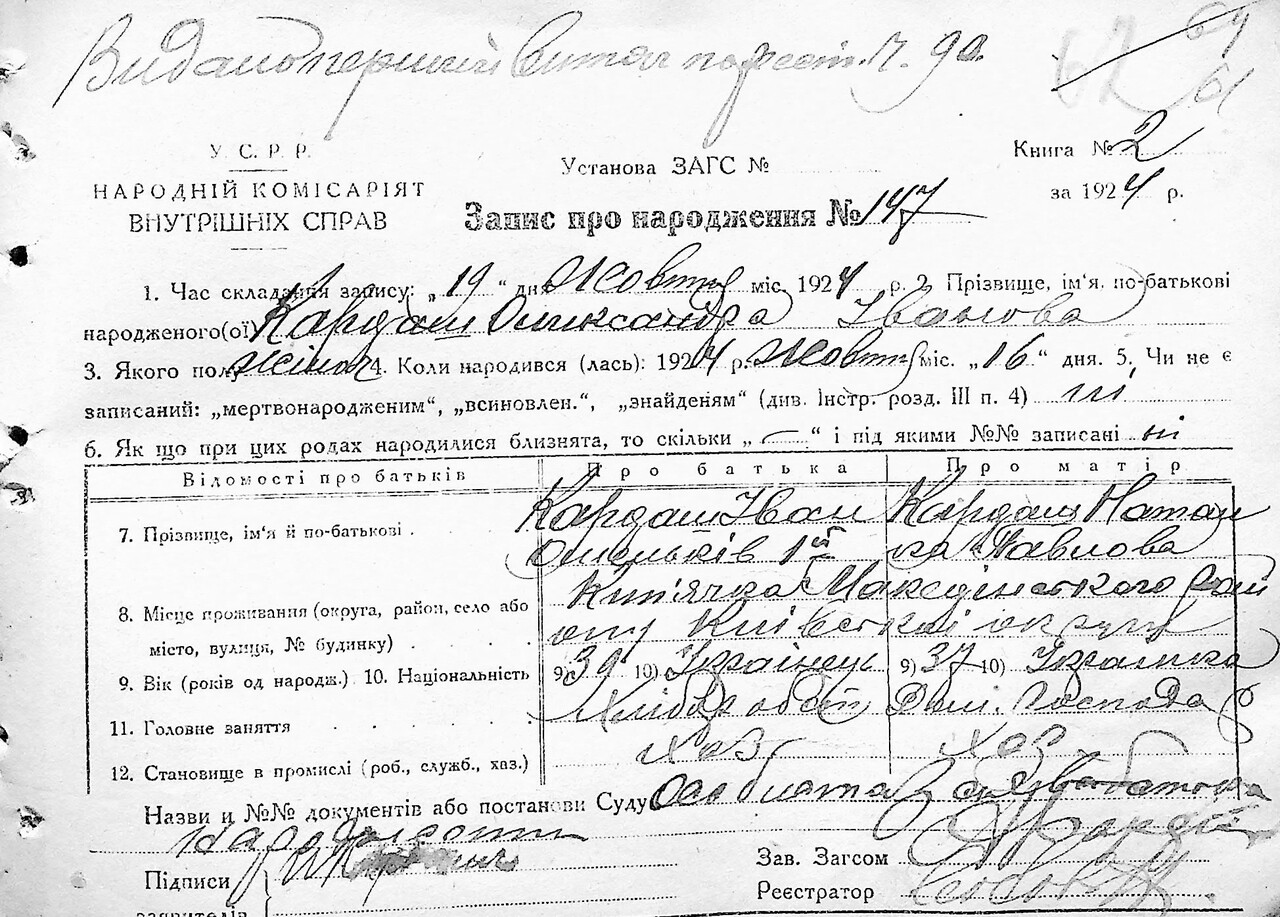 Видано перший витяг по реєст. Ч. 90.
62 64 61
У. С. Р. Р.
НАРОДНІЙ КОМІСАРІЯТ
ВНУТРІШНІХ СПРАВ
Установа ЗАГС №
Книга № 2
за 1924 р.
Запис про народження № 147
1. Час складання запису: „19“ дня Жовтня міс. 1924 р. 2. Прізвище, ім'я, по-батькові
народженого(ої) Кардаш Олександра Іванова
3. Якого полу жіноч 4. Коли народився (лась): 1924 р. Жовтня міс. „16“ дня. 5. Чи не є
записаний: „мертвонародженим“, „всиновлен.“, „знайденям“ (див. Інстр. розд. III п. 4) ні
6. Як що при цих родах народилися близнята, то скільки „—“ і під якими №№ записані ні
Відомості про батьків Про батька Про матір
7. Прізвище, ім'я й по-батькові . Кардаш Іван Омельків 1й Кардаш Наталка Павлова
8. Місце проживання (округа, район, село або
місто, вулиця, № будинку) . . . Кип'ячка Македінського району Київської округи
9. Вік (років од народж.) 10. Національність 9) 39 10) Українець 9) 37 10) Українка
11. Головне заняття . . . . . Хлібороб Дом. Господар
12. Становище в промислі (роб., служб., хаз.) хаз. хаз.
Назви и №№ документів або постанови Суду Особиста заява батька
Підписи
заявителів
Зав. Загсом
Реєстратор